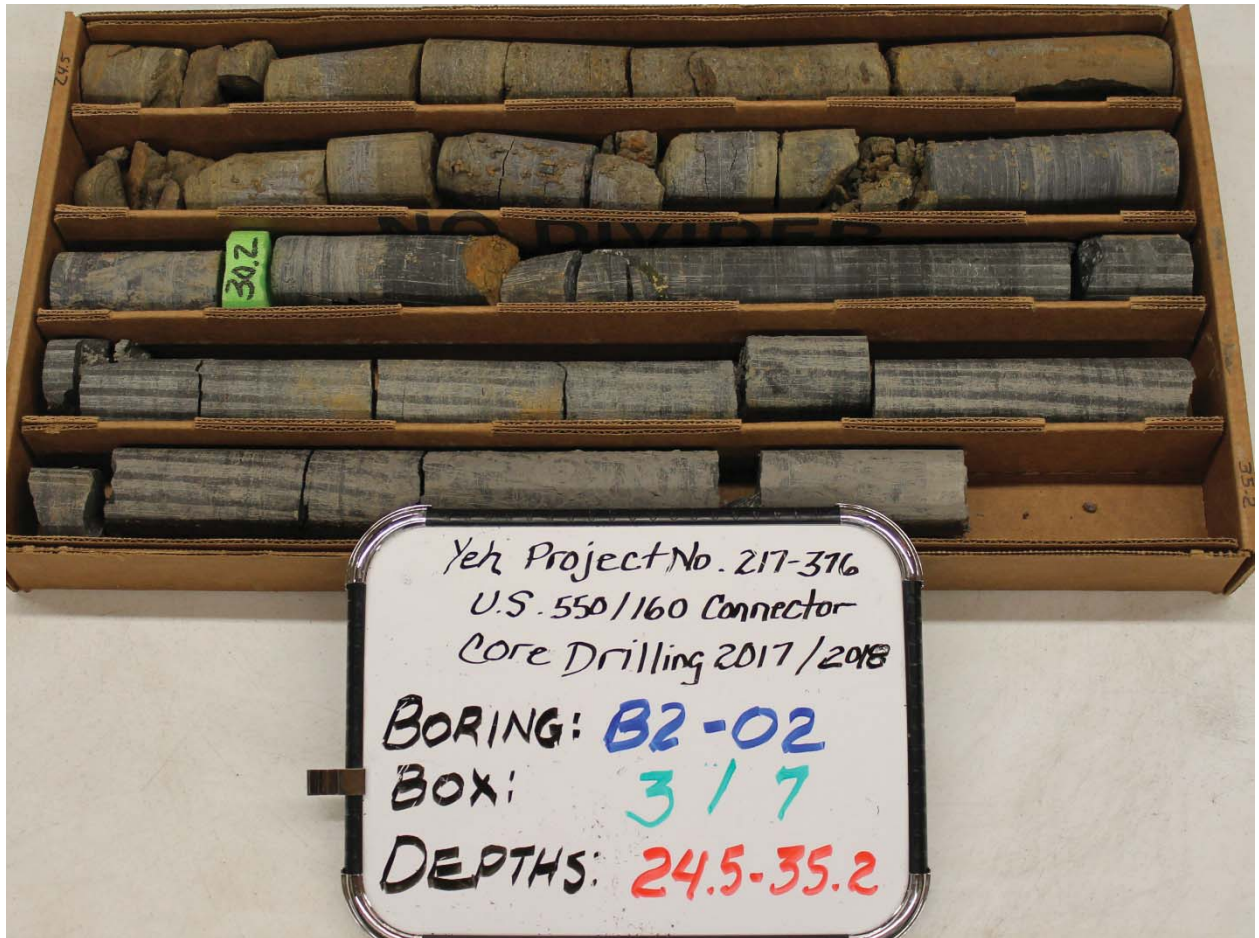 24.5
NO DIVIDER
30.2
35.2
Yeh Project No. 217-376
U.S. 550/160 Connector
Core Drilling 2017/2018
BORING: B2-02
BOX: 3 / 7
DEPTHS: 24.5-35.2